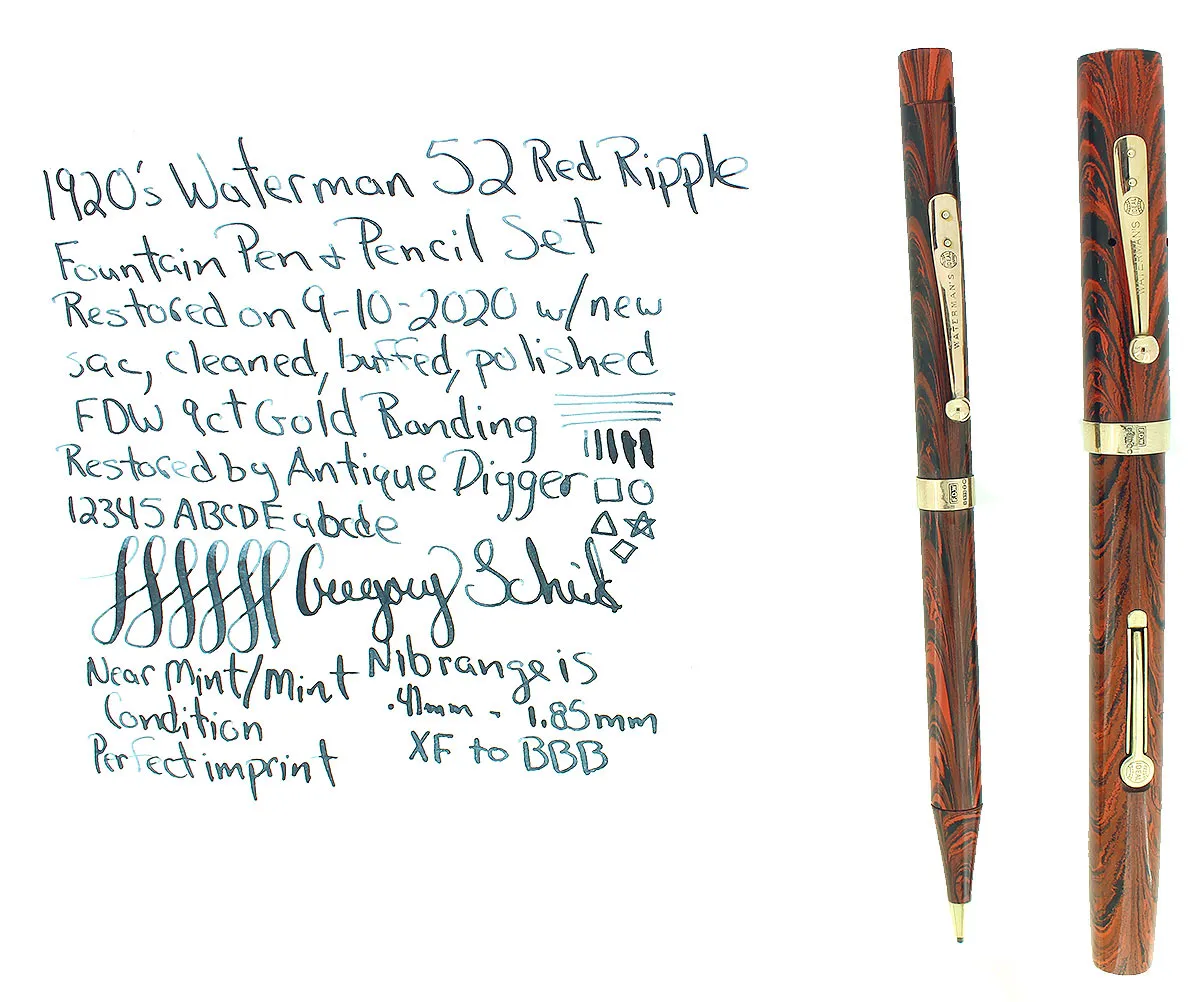 1920's Waterman 52 Red Ripple
Fountain Pen & Pencil Set
Restored on 9-10-2020 w/new
sac, cleaned, buffed, polished
FDW 9ct Gold Banding
Restored by Antique Digger
12345 ABCDE abcde
Gregory
Near Mint/Mint
Condition
Perfect imprint
Nib range is
.41mm - 1.85mm
XF to BBB
WATERMAN'S
WATERMAN'S
IDEAL